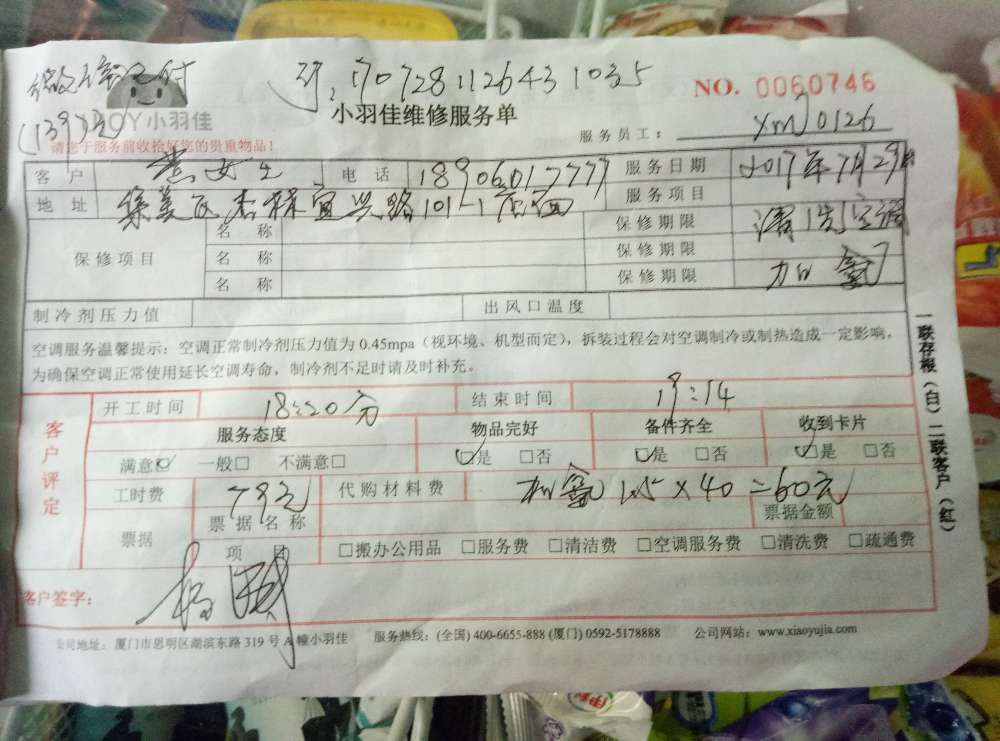 微信支付 牙:170728112643 1035 NO. 0060746
(139元) OY小羽佳 小羽佳维修服务单
请您于服务前收拾好您的贵重物品! 服务员工: XMJ0126
客 户 黄女士 电 话 18906017777 服务日期 2017年7月29日
地 址 集美区杏林宜兴路101-1店面 服务项目 清洗空调 加氟
保修项目 名 称 保修期限
名 称 保修期限
名 称 保修期限
制冷剂压力值 出风口温度
空调服务温馨提示:空调正常制冷剂压力值为 0.45mpa(视环境、机型而定),拆装过程会对空调制冷或制热造成一定影响,
为确保空调正常使用延长空调寿命,制冷剂不足时请及时补充。
客户评定 开工时间 18:20分 结束时间 19:14
服务态度 物品完好 备件齐全 收到卡片
满意☑ 一般□ 不满意□ ☑是 □否 ☑是 □否 ☑是 □否
工时费 79元 代购材料费 加氟 1.5×40=60元
票据 票据名称 票据金额
项 目 □搬办公用品 □服务费 □清洁费 □空调服务费 □清洗费 □疏通费
客户签字:
公司地址:厦门市思明区湖滨东路 319 号 A 幢小羽佳 服务热线:(全国) 400-6655-888 (厦门) 0592-5178888 公司网站:www.xiaoyujia.com
一联存根(白)二联客户(红)